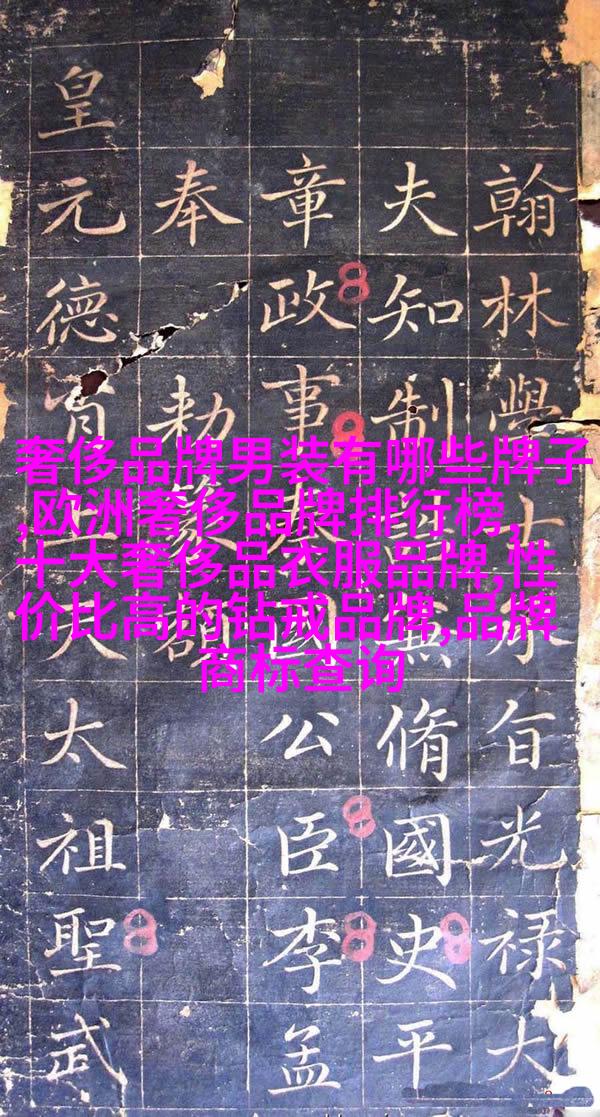 奢侈品牌男装有哪些牌子
,欧洲奢侈品牌排行榜,
十大奢侈品衣服品牌,性
价比高的钻戒品牌,品牌
商标查询
翰林學士承旨光祿大
夫知制兼脩國史平
章政事國公臣李孟
奉勅
皇元德天太祖聖武